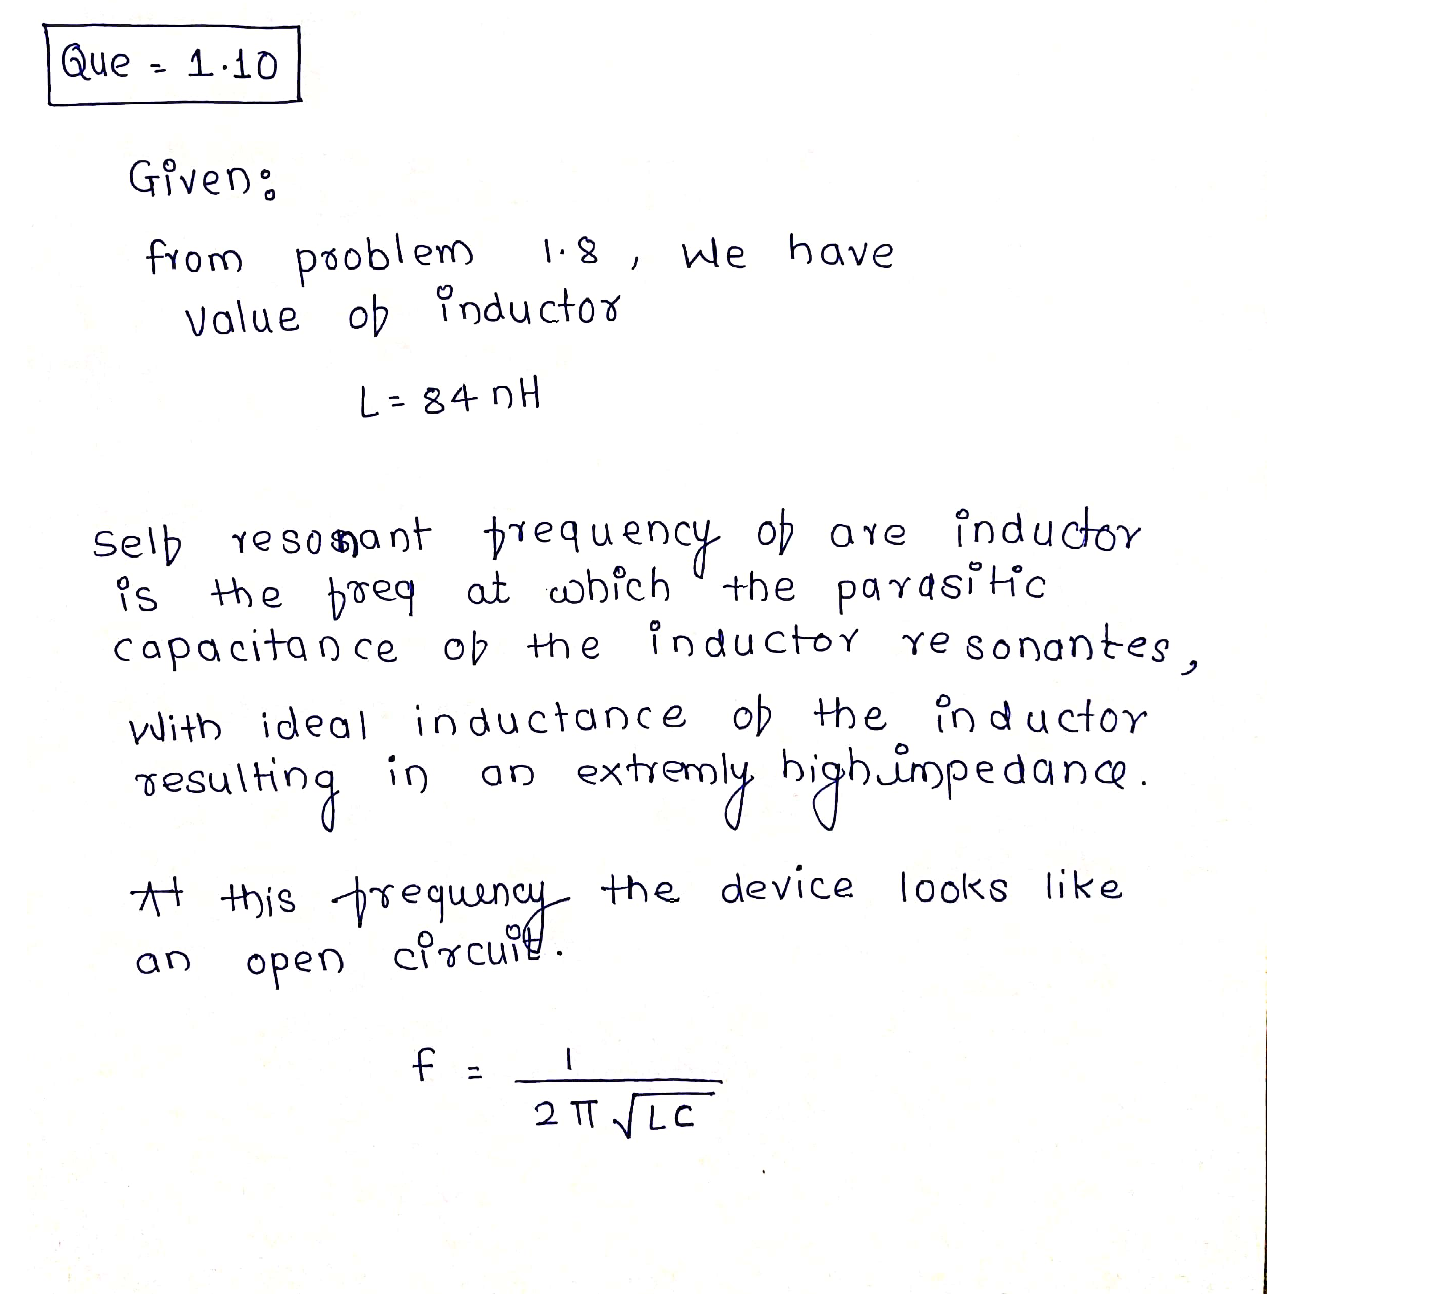 Que = 1.10
Given:
from problem 1.8, We have
value of inductor
L = 84 nH
self resonant frequency of are inductor
is the freq at which the parasitic
capacitance of the inductor resonantes,
With ideal inductance of the inductor
resulting in an extremly high impedance.
At this frequency the device looks like
an open circuit.
f = 1 / 2π √LC